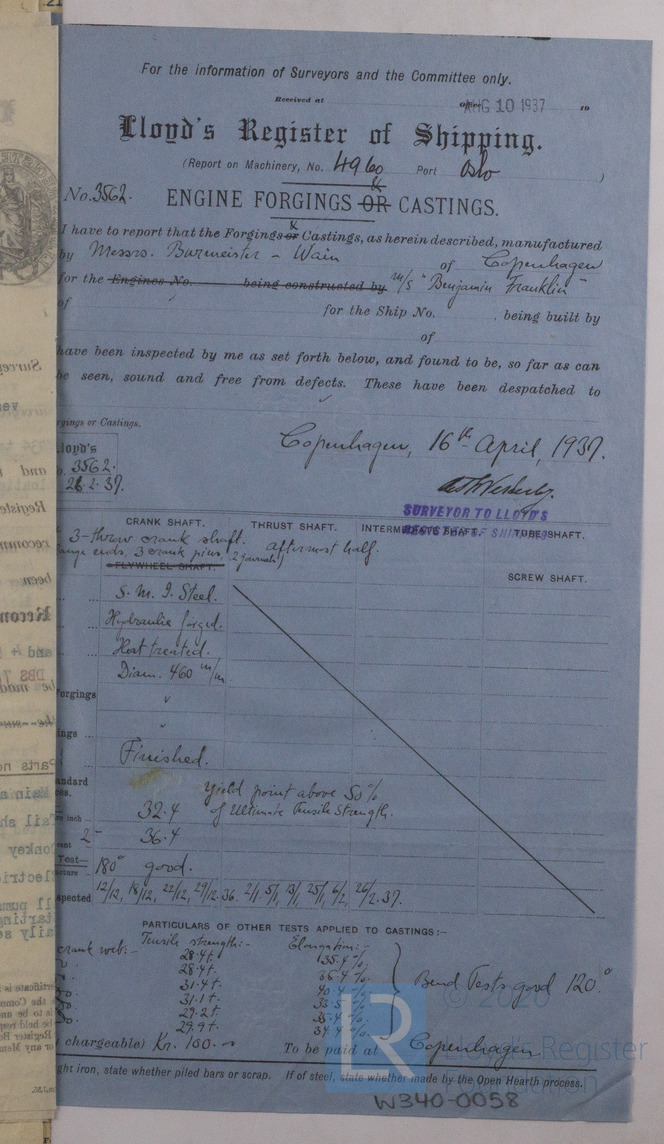 For the information of Surveyors and the Committee only.
Received at AUG 10 1937 19
Lloyd's Register of Shipping.
(Report on Machinery, No. 4960 Port Oslo )
No. 3562. ENGINE FORGINGS OR & CASTINGS.
I have to report that the Forgings or & Castings, as herein described, manufactured
by Messrs. Burmeister - Wain of Copenhagen
for the Engines No. being constructed by m/s "Benjamin Franklin"
of for the Ship No. being built by
of
have been inspected by me as set forth below, and found to be, so far as can
be seen, sound and free from defects. These have been despatched to
rgings or Castings.
Copenhagen, 16th April, 1937.
loyd's
o. 3562.
26.2.37.
SURVEYOR TO LLOYD'S
REGISTER OF SHIPPING
CRANK SHAFT. THRUST SHAFT. INTERMEDIATE SHAFT. TUBE SHAFT.
3-throw crank shaft. aftermost half.
ange ends, 3 crank pins, 2 journals)
FLYWHEEL SHAFT. SCREW SHAFT.
S. M. I. Steel.
Hydraulic forged.
Heat treated.
Diam. 460 m/m
Forgings
ings
Finished.
andard
Yield point above 50%
32.4 of Ultimate Tensile Strength.
re inch
cent 2" 36.4
Test—
180° good.
spected 12/12, 18/12, 22/12, 29/12.36. 2/1, 5/1, 13/1, 25/1, 6/2, 26/2.37.
PARTICULARS OF OTHER TESTS APPLIED TO CASTINGS:—
crank web:- Tensile strength:- Elongation:-
28.4t. 35.4%
28.4t. 36.4%
31.4t. 40.4%
31.1t.
29.2t. 35.4%
29.9t. 34.4%
Bend Tests good 120°
chargeable) Kr. 100.- To be paid at Copenhagen
ght iron, state whether piled bars or scrap. If of steel, state whether made by the Open Hearth process.
© 2020
Lloyd's Register
Foundation
W340-0058